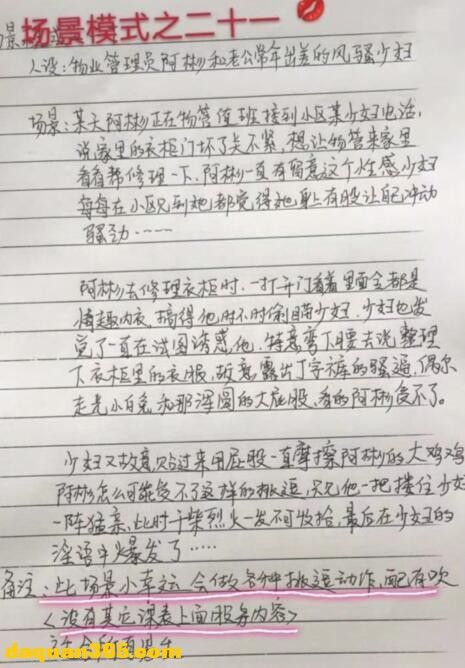 场景模式之二十一
人设：物业管理员阿彬和老公常年出差的风骚少妇
场景：某天阿彬正在物管值班接到小区某少妇电话，
说家里的衣柜门坏了关不紧，想让物管来家里
看看帮修理一下，阿彬一直有留意这个性感少妇
每每在小区见到她都觉得她身上有股让自己冲动
骚劲……
阿彬去修理衣柜时，一打开门看着里面全都是
情趣内衣，搞得他时不时偷瞄少妇，少妇也发
觉了一直在试图诱惑他，特意弯下腰去说整理
下衣柜里的衣服，故意露出丁字裤的骚逼，偶尔
走光小白兔和那浑圆的大屁股，看的阿彬受不了。
少妇又故意贴过来用屁股一直摩擦阿彬的大鸡鸡
阿彬怎么可能受不了这样的挑逗，只见他一把搂住少妇
一阵猛亲，此时干柴烈火一发不可收拾，最后在少妇的
淫语中爆发了……
备注：此场景小幸运会做各种挑逗动作，配有吹
〈没有其它课表上面服务内容〉
daquan365.com